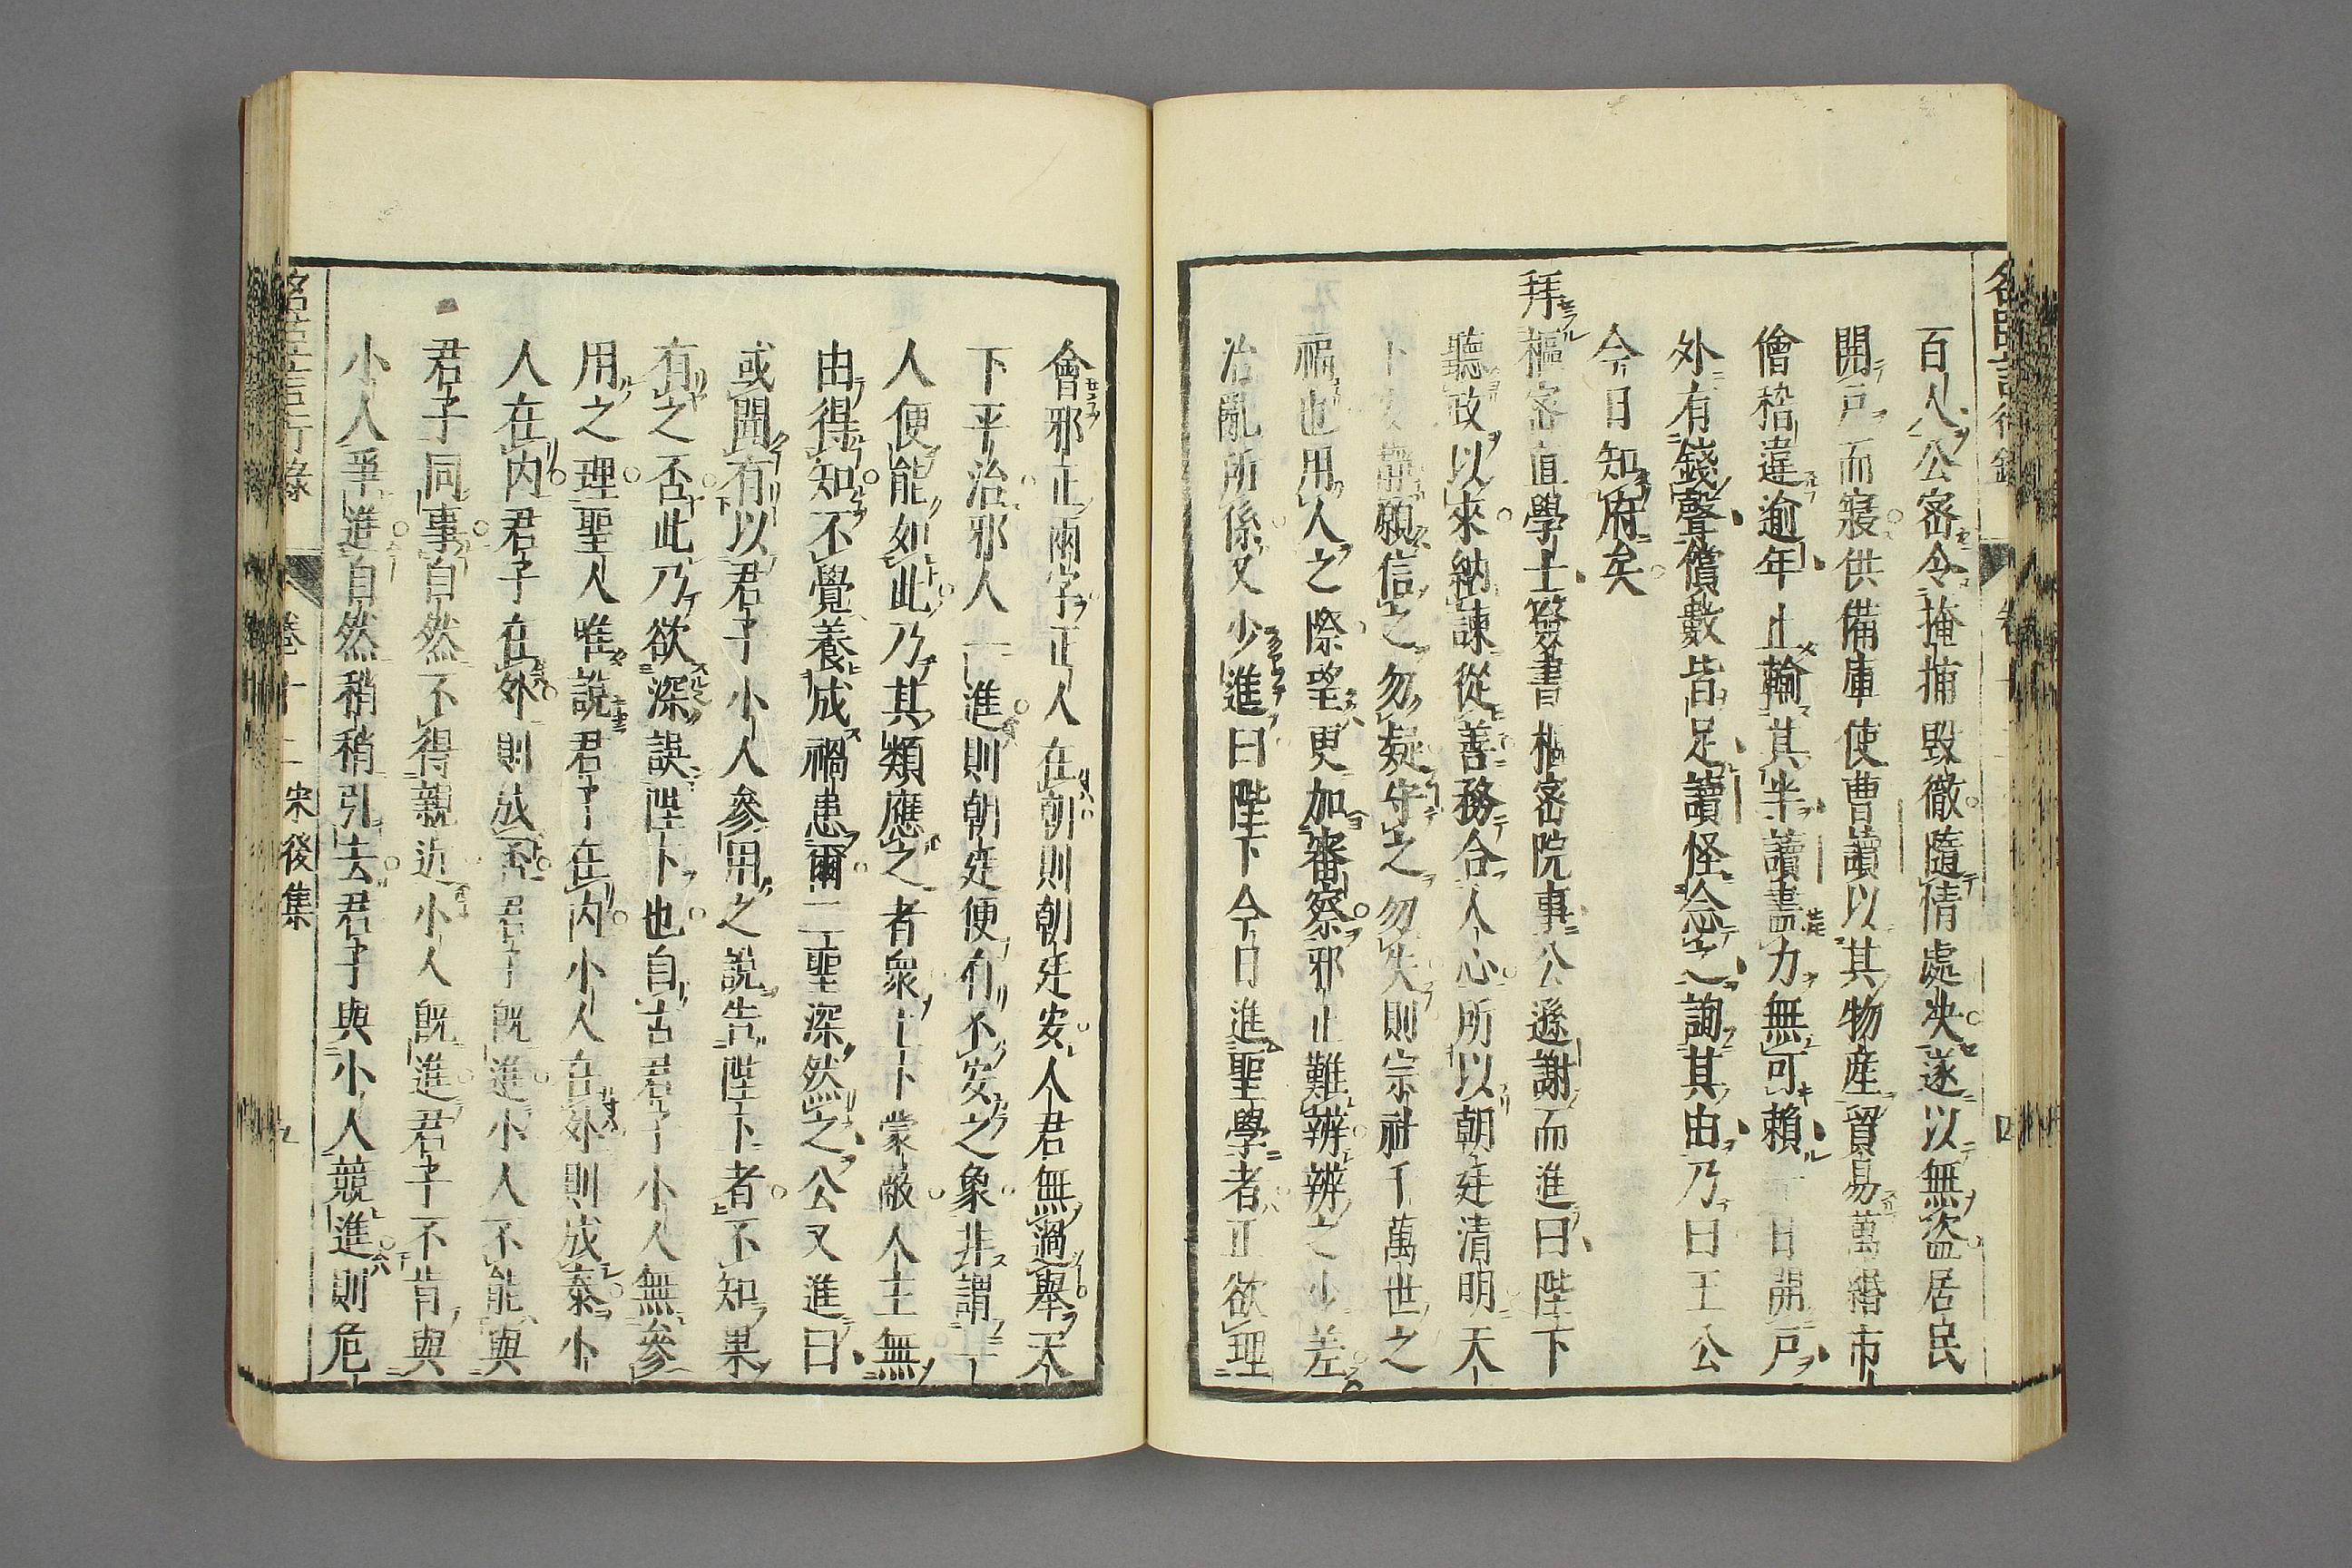 百人公密令掩捕毀徹隨情處决遂以無盜居民
開戸而寢供備庫使曹讀以其物産貿易萬緡市
儈稽違逾年止輸其半讀盡力無可賴一日開戸
外有錢聲償數皆足讀怪念之詢其由乃曰王公
今日知府矣
拜樞密直學士簽書樞密院事公遜謝而進曰陛下
聽政以來納諫從善務合人心所以朝廷清明天
下安靜願信之勿疑守之勿失則宗社千萬世之
福也用人之際望更加審察邪正難辨辨之少差
治亂所係又少進曰陛下今日進聖學者正欲理
會邪正兩字正人在朝則朝廷安人君無過舉天
下平治邪人一進則朝廷便有不安之象非謂一
人便能如此乃其類應之者衆上下蒙蔽人主無
由得知不覺養成禍患爾二聖深然之公又進曰
或聞有以君子小人參用之說告陛下者不知果
有之否此乃欲深誤陛下也自古君子小人無參
用之理聖人唯說君子在内小人在外則成泰小
人在内君子在外則成否君子既進小人不能與
君子同事自然不得親近小人既進君子不肯與
小人爭進自然稍稍引去君子與小人競進則危
名臣言行錄 卷十二 宋後集